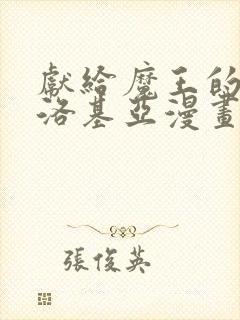 獻給魔王的
洛基亞漫畫
張俊英